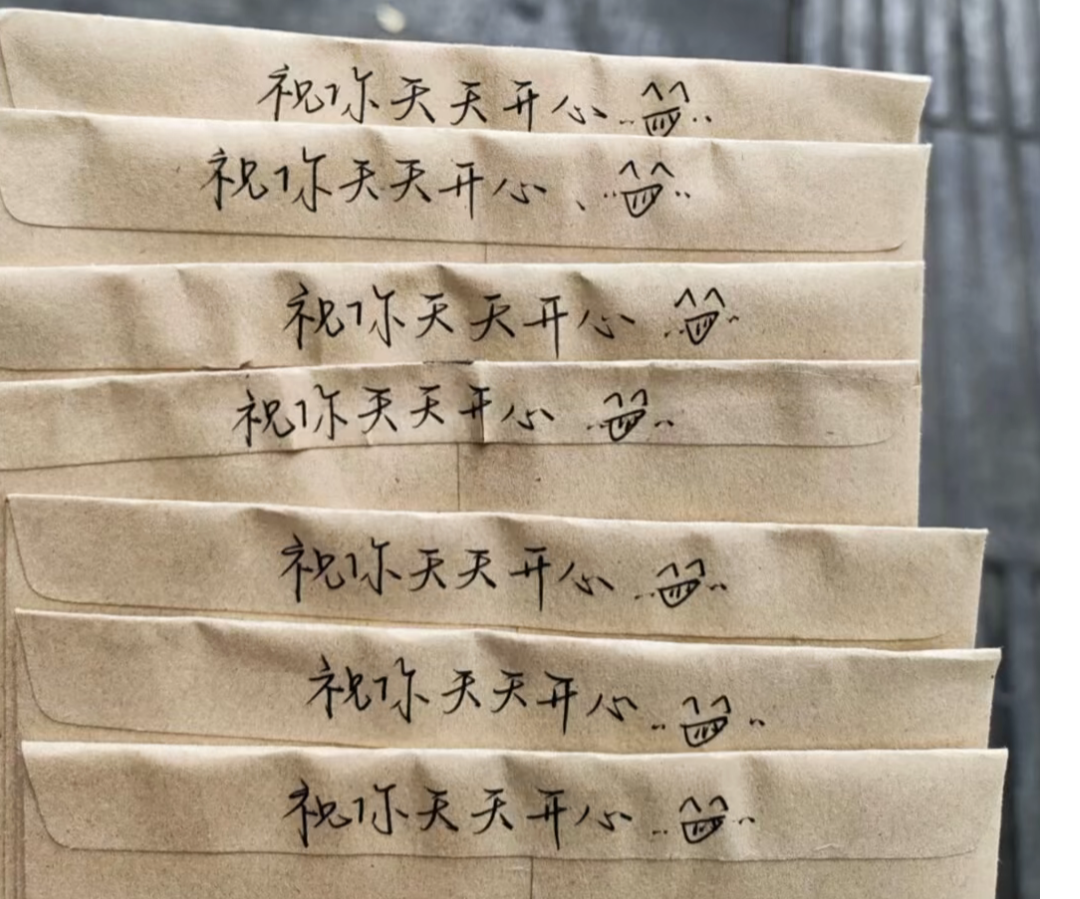 祝你天天开心
祝你天天开心
祝你天天开心
祝你天天开心
祝你天天开心
祝你天天开心
祝你天天开心